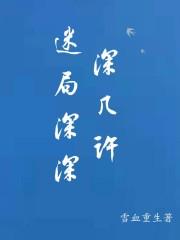 迷局深深
深几许
雪血重生著